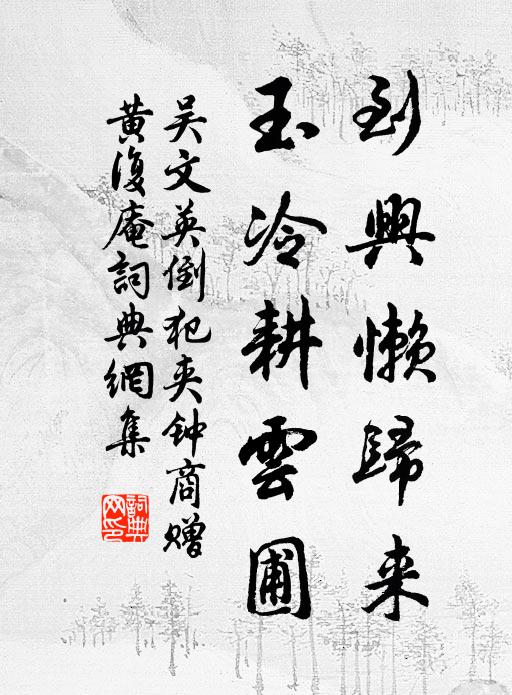 到興懶歸来
玉冷耕雲圃
吴文英倒犯夹钟商赠
黄復庵詞典網集
詞典网印